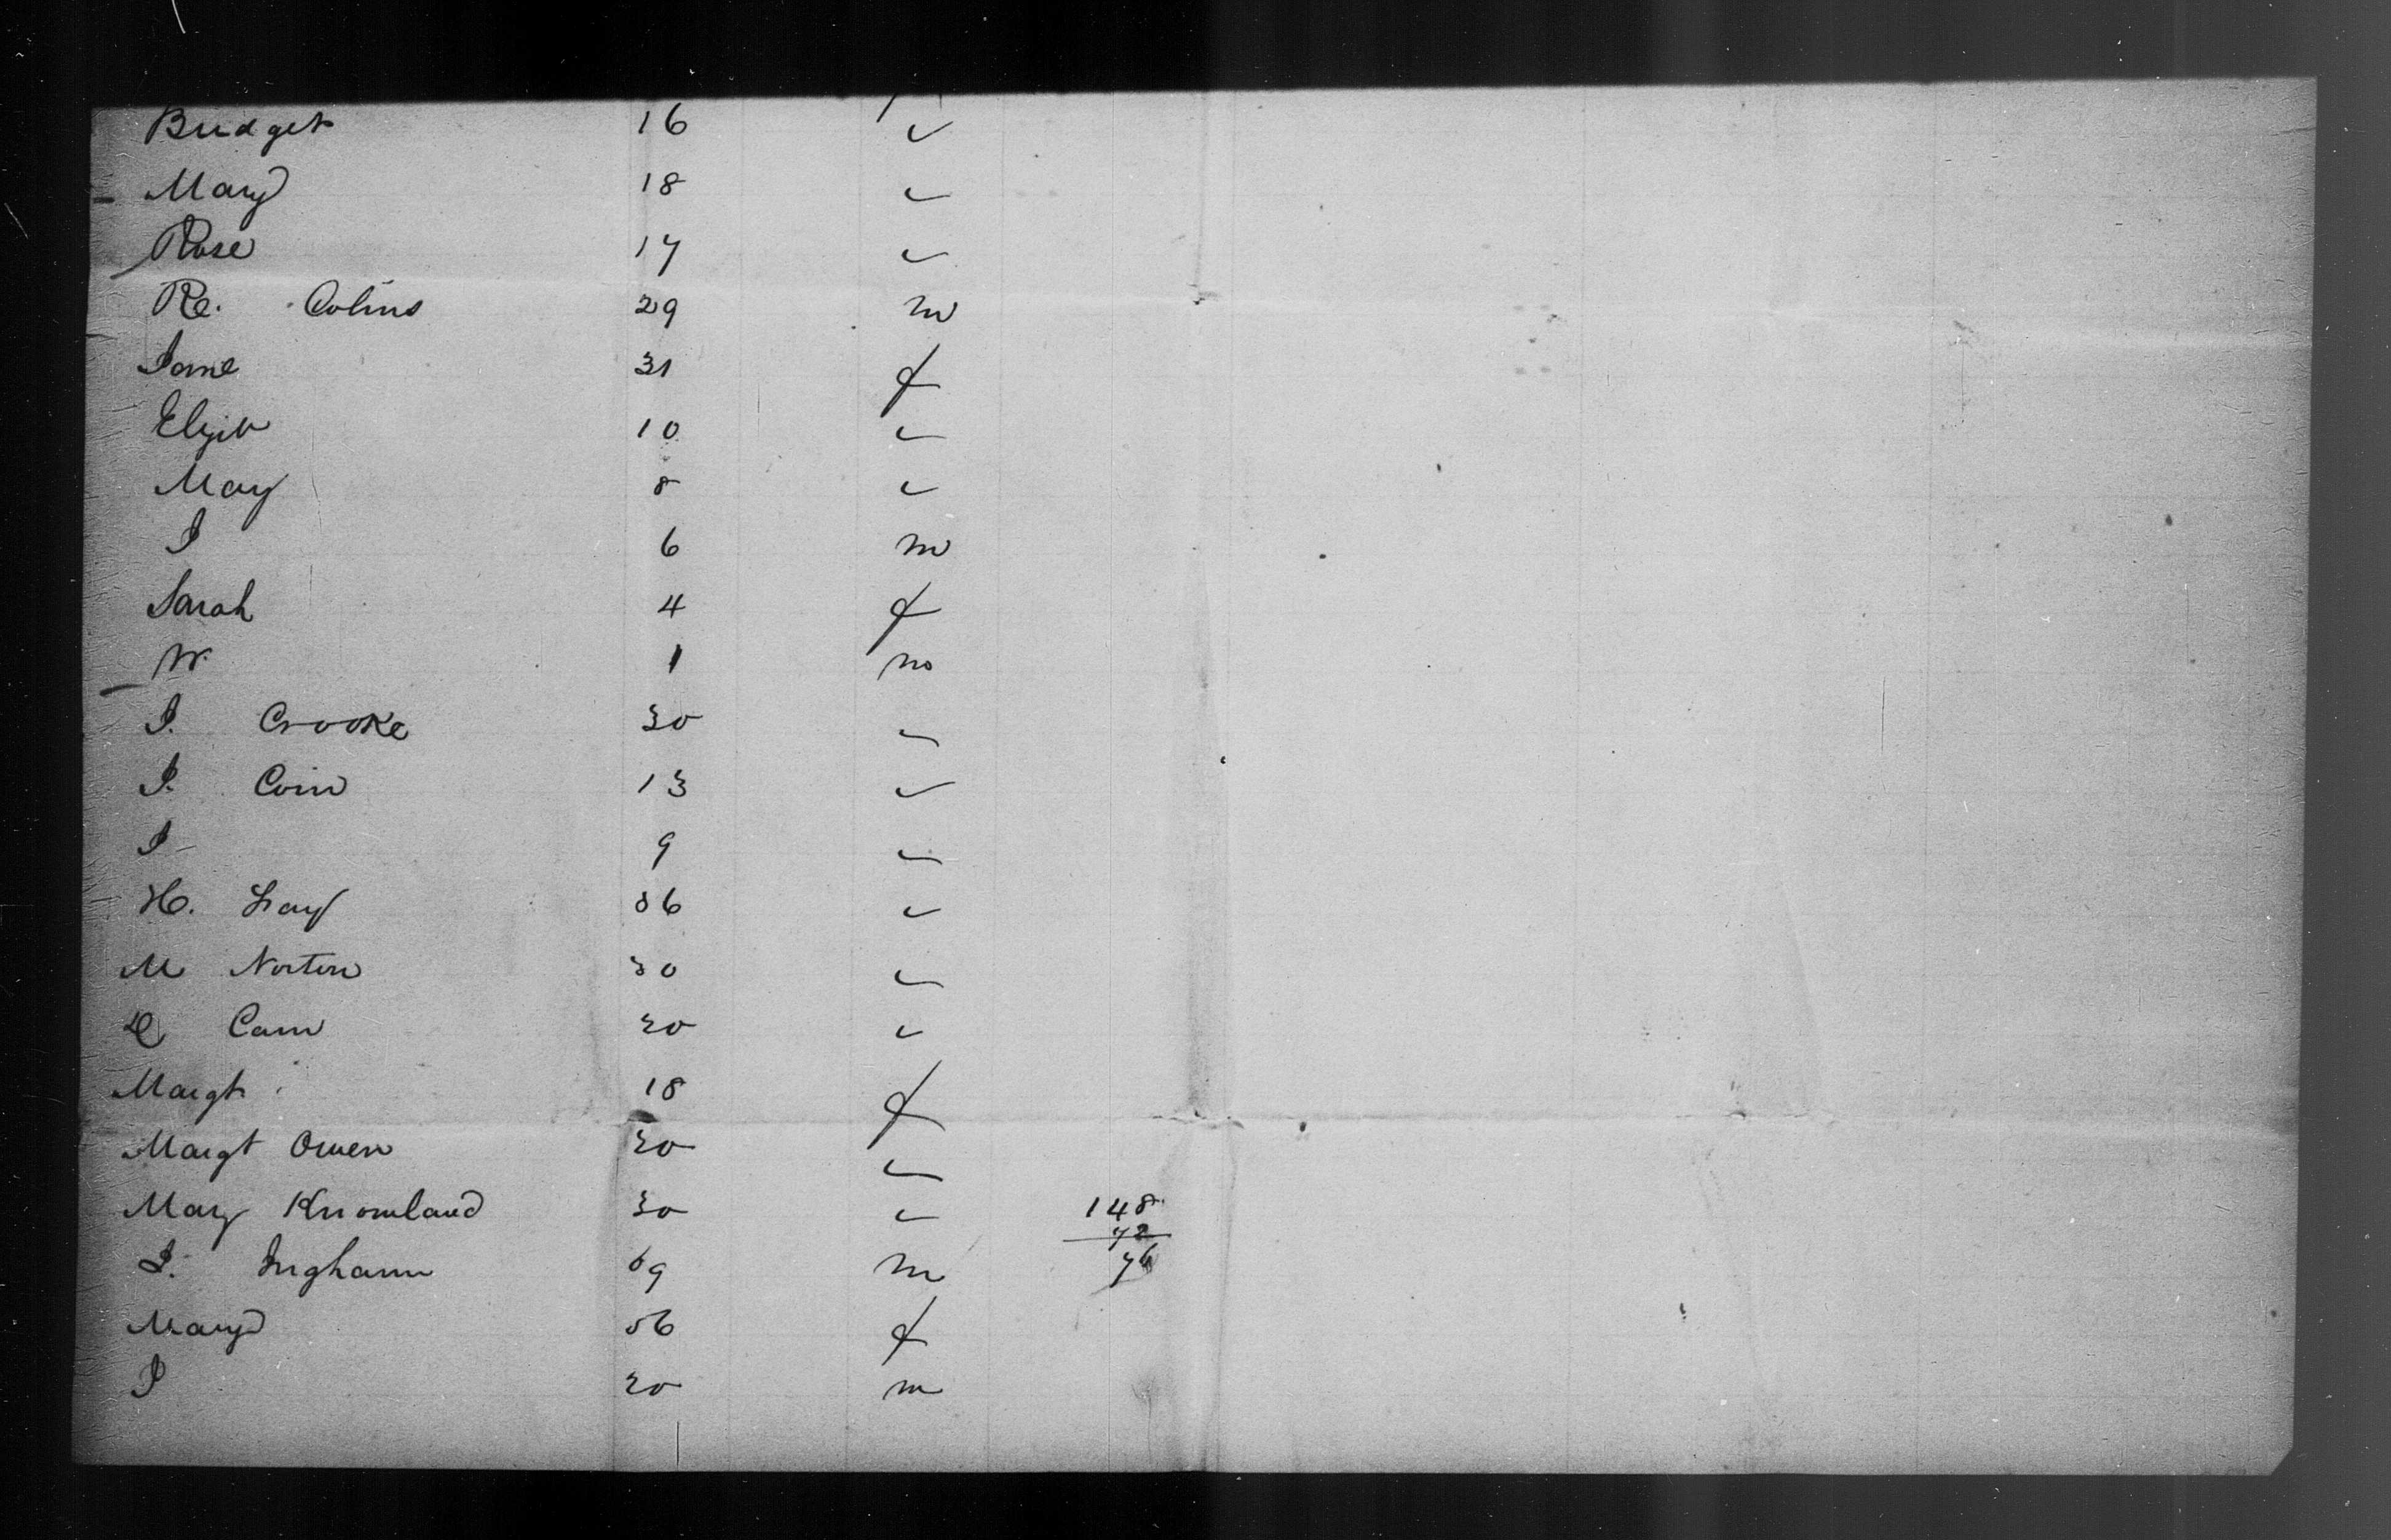 Bridget 16 ✓
Mary 18 ✓
Rose 17 ✓
Re. Colins 29 m
Jane 31 f
Elizth 10 ✓
Mary 8 ✓
J 6 m
Sarah 4 f
W. 1 m
J. Crooke 30 ✓
J. Coin 13 ✓
J 9 ✓
H. 36 ✓
M Norton 30 ✓
Cain 20 ✓
Margt 18 f
Margt Owen 20 ✓
Mary Knowland 30 ✓ 148
72
J. Ingham 59 m 76
Mary 56 f
J 20 m